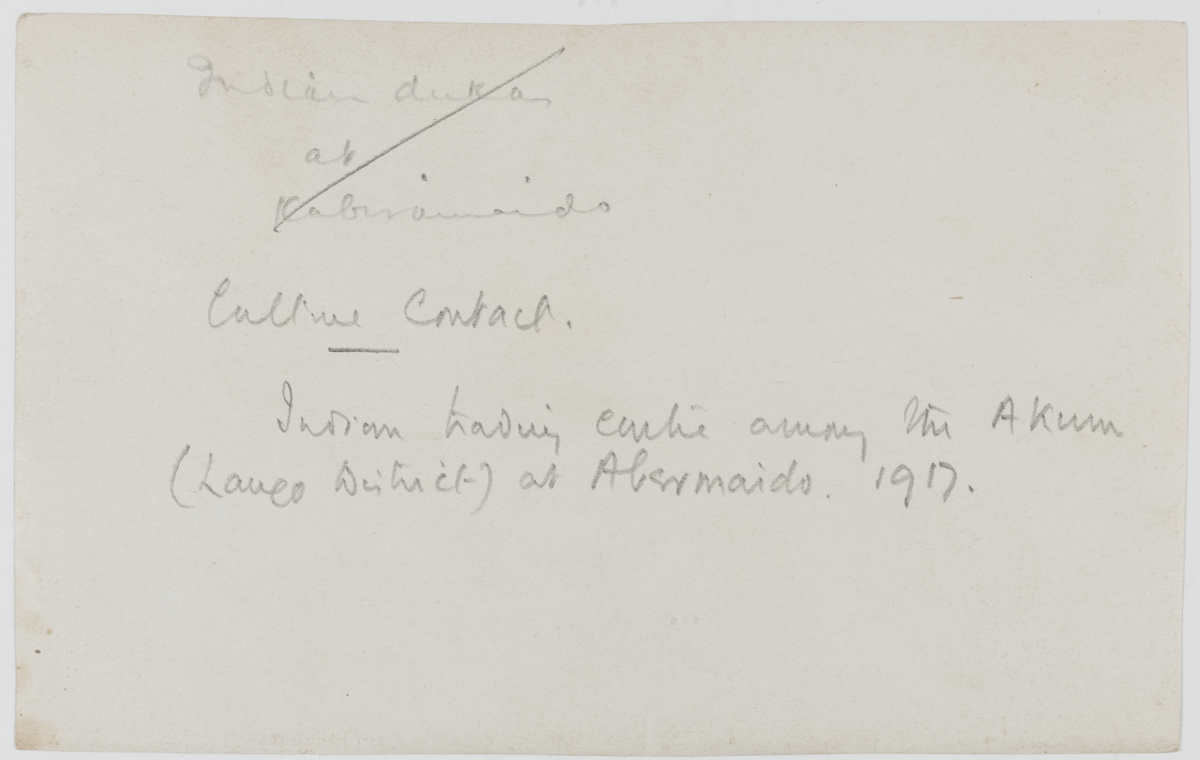 Indian dukas
at
Kaberamaido
Culture Contact.
Indian trading centre among the Akum
(Lango District) at Abermaido. 1917.